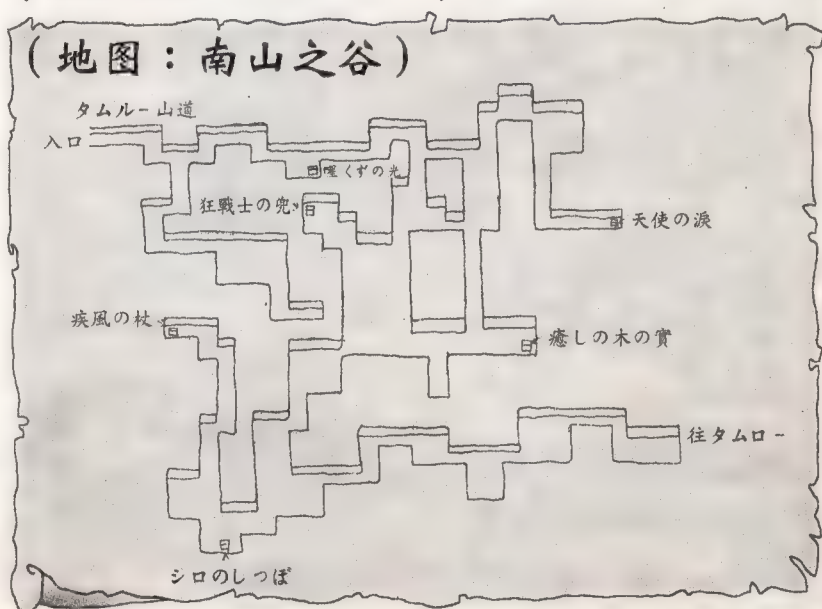 (地图：南山之谷)
タムルー山道
入口
曜くずの光
狂戰士の兜
天使の淚
疾風の杖
癒しの木の實
往タムロー
シロのしつぽ